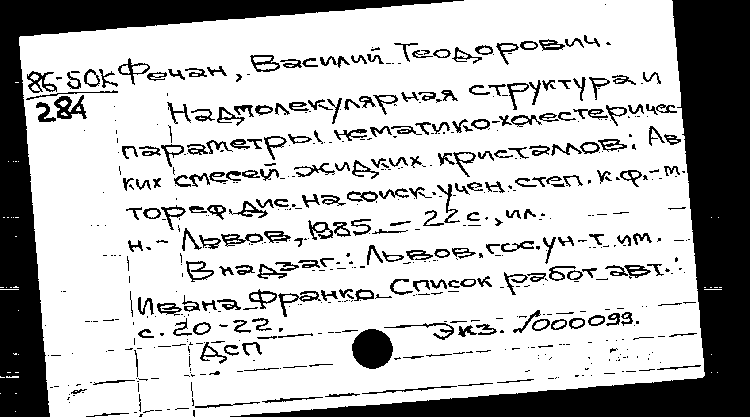 86-50К Фечан, Василий Теодорович.
284
Надмолекулярная структура и
параметры нематико-холестеричес-
ких смесей жидких кристаллов: Ав-
тореф. дис. на соиск. учен. степ. к.ф.-м.
н. - Львов, 1985. - 22 с., ил.
В надзаг.: Львов. гос. ун-т им.
Ивана Франко. Список работ авт.:
с. 20-22.
ДСП
Экз. √000099.